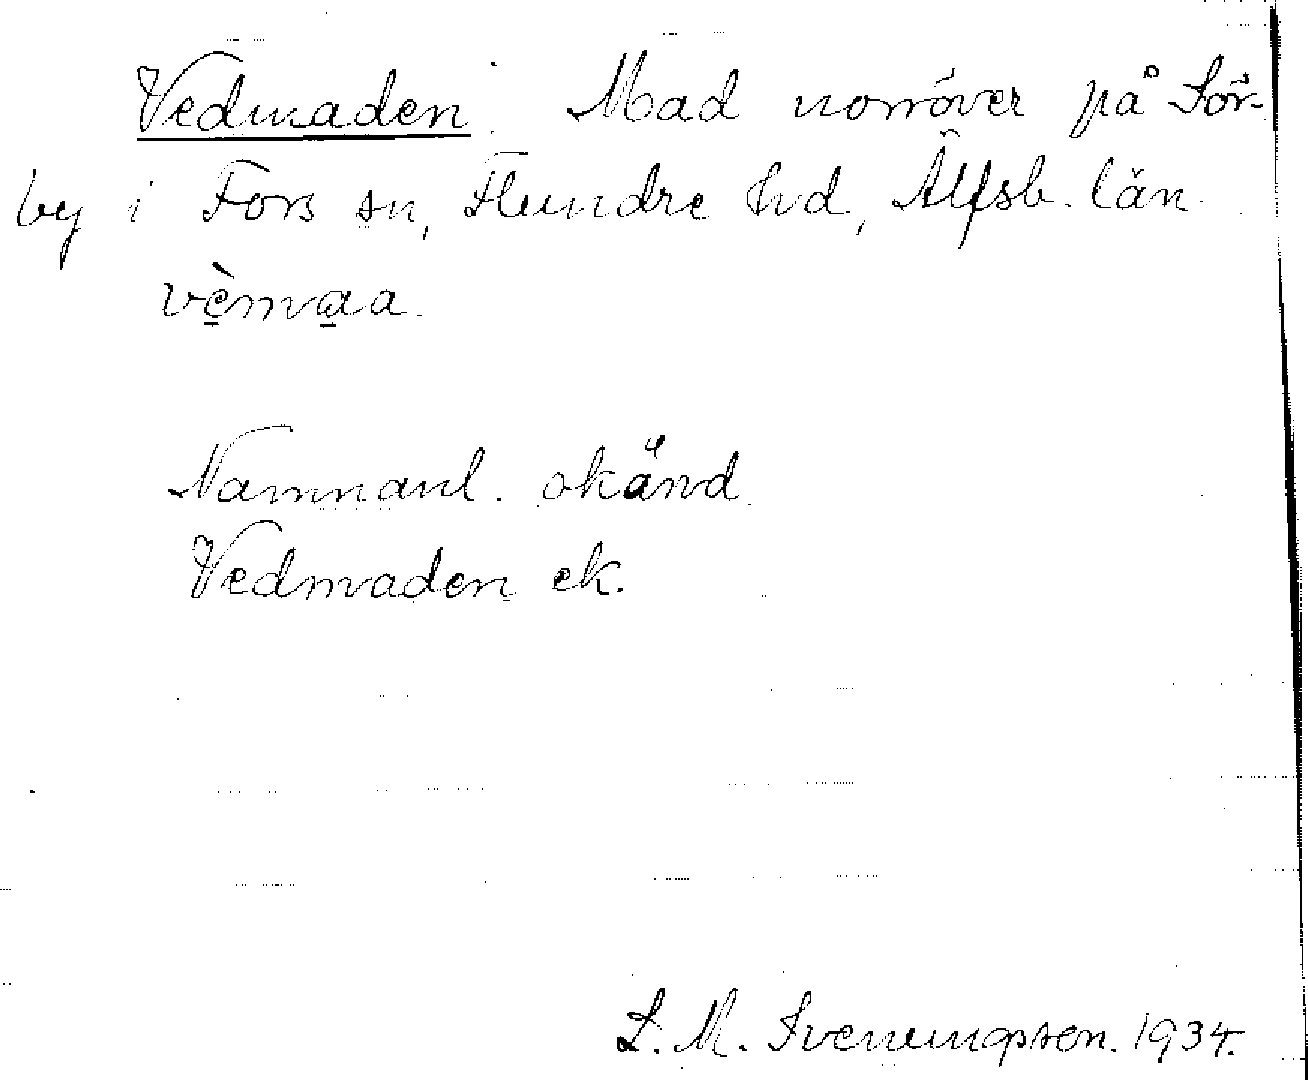 Vedmaden. Mad norröver på Sör-
by i Fors sn, Flundre hd, Älfsb. län.
vèmaa.
Namnanl. okänd.
Vedmaden ek.
L. M. Svenungsson. 1934.